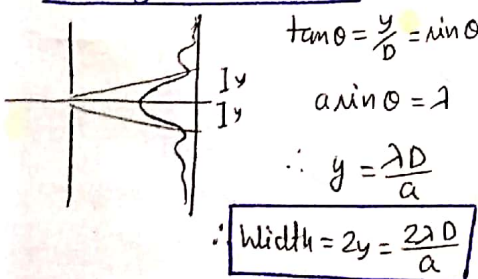 tanθ = y/D = sinθ
I y
I y
a sinθ = λ
∴ y = λD/a
∴ Width = 2y = 2λD/a